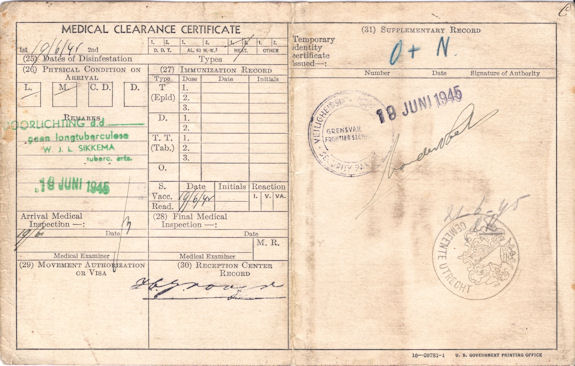 MEDICAL CLEARANCE CERTIFICATE
1st 19/6/45 2nd
1. 2. 1. 2. 1. 2. 1. 2.
D. D. T. AL. 63 M.K.3 HEAT. OTHER
(25) Dates of Disinfestation Types
(26) PHYSICAL CONDITION ON
ARRIVAL
L. M. C. D. D.
REMARKS
DOORLICHTING d.d.
geen longtuberculose
W. J. L. SIKKEMA
tuberc. arts.
19 JUNI 1945
Arrival Medical
Inspection —:
19/6
Date
Medical Examiner
(27) IMMUNIZATION RECORD
Type. Dose Date Initials
T 1.
(Epid) 2.
3.
D. 1.
2.
T. T. 1.
(Tab.) 2.
3.
O.
S. Date Initials Reaction
Vacc. 19/6/45 I. V. VA.
Read.
(28) Final Medical
Inspection —:
Date M. R.
Medical Examiner
(29) MOVEMENT AUTHORIZATION
OR VISA
(30) RECEPTION CENTER
RECORD
(31) SUPPLEMENTARY RECORD
Temporary
identity
certificate
issued—:
O + N.
Number Date Signature of Authority
GRENSVAK
FRONTIER SECTION
19 JUNI 1945
GEMEENTE UTRECHT
16—G9781-1 U. S. GOVERNMENT PRINTING OFFICE